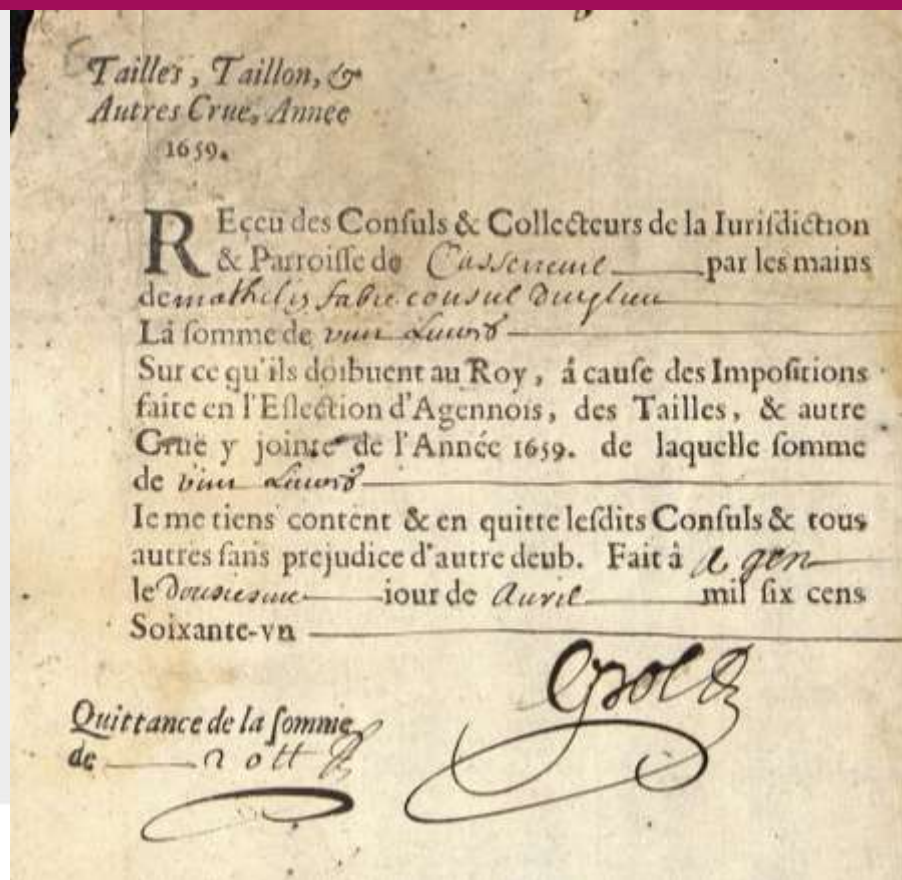 Tailles, Taillon, &
Autres Crue, Annee
1659.
REçeu des Consuls & Collecteurs de la Iurisdiction
& Parroisse de Casseneuil par les mains
de mathelis fabre consul
La somme de vint Liures
Sur ce qu'ils doibuent au Roy, á cause des Impositions
faite en l'Eslection d'Agennois, des Tailles, & autre
Cruë y jointe de l'Année 1659. de laquelle somme
de vint Liures
Ie me tiens content & en quitte lesdits Consuls & tous
autres sans prejudice d'autre deub. Fait á Agen
le dousiesme iour de Auril mil six cens
Soixante-vn
Quittance de la somme
de 20 tt